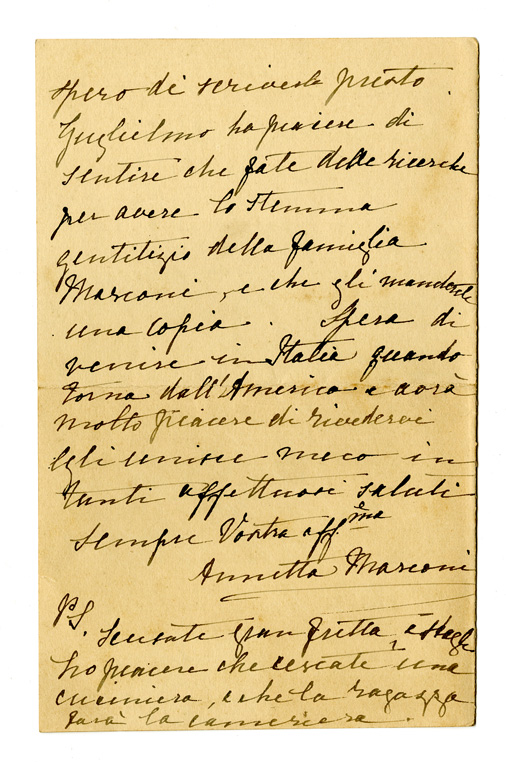 spero di scriverle presto.
Guglielmo ha piacere di
sentire che fate delle ricerche
per avere lo stemma
gentilizio della famiglia
Marconi, e che gli manderete
una copia. Spera di
venire in Italia quando
torna dall'America e avrà
molto piacere di rivedervi
Egli unisce meco in
tanti affettuosi saluti
sempre Vostra affma
Annetta Marconi
PS.
Scusate gran fretta,
ho piacere che cercate una
cuciniera, e che la ragazza
farà la cameriera.